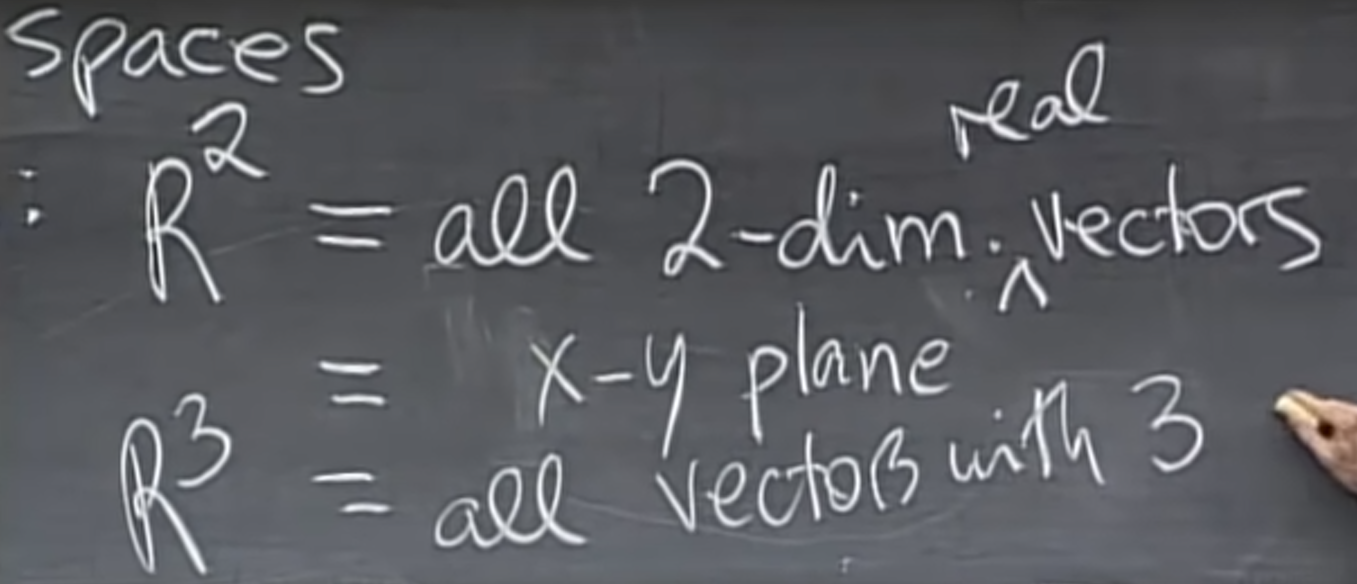 spaces
: R² = all 2-dim. real vectors
= x-y plane
R³ = all vectors with 3